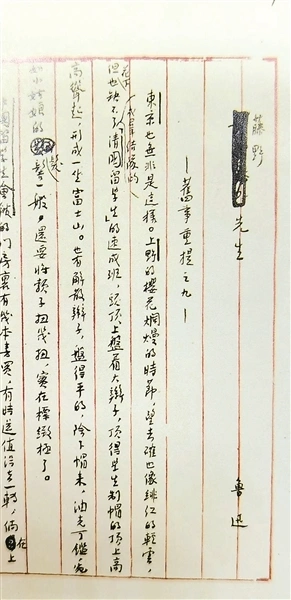 藤野先生
—舊事重提之九—
魯迅
東京也無非是這樣。上野的櫻花爛熳的時節,望去確也像緋紅的輕雲,
但花下也缺不了成群結隊的「清國留學生」的速成班,頭頂上盤着大辮子,頂得學生制帽的頂上高
高聳起,形成一座富士山。也有解散辮子,盤得平的,除下帽來,油光可鑑,宛
如小姑娘的髮髻一般,還要將頸子扭幾扭。實在標緻極了。
國留學生會館的門房裏有幾本書買,有時還值得去一轉,倘在上